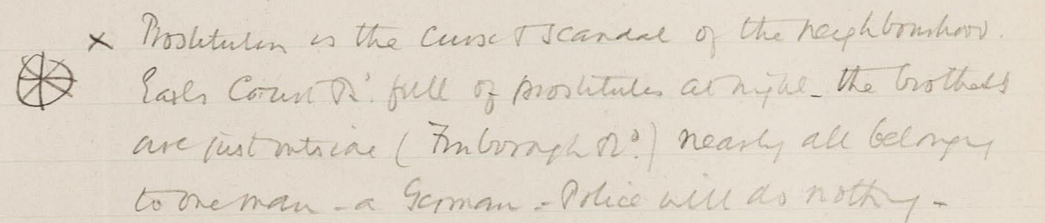 x Prostitution is the curse & scandal of the neighbourhood.
Earls Court Rd. full of prostitutes at night - the brothels
are just outside (Finborough Rd.) nearly all belonging
to one man - a German - Police will do nothing -